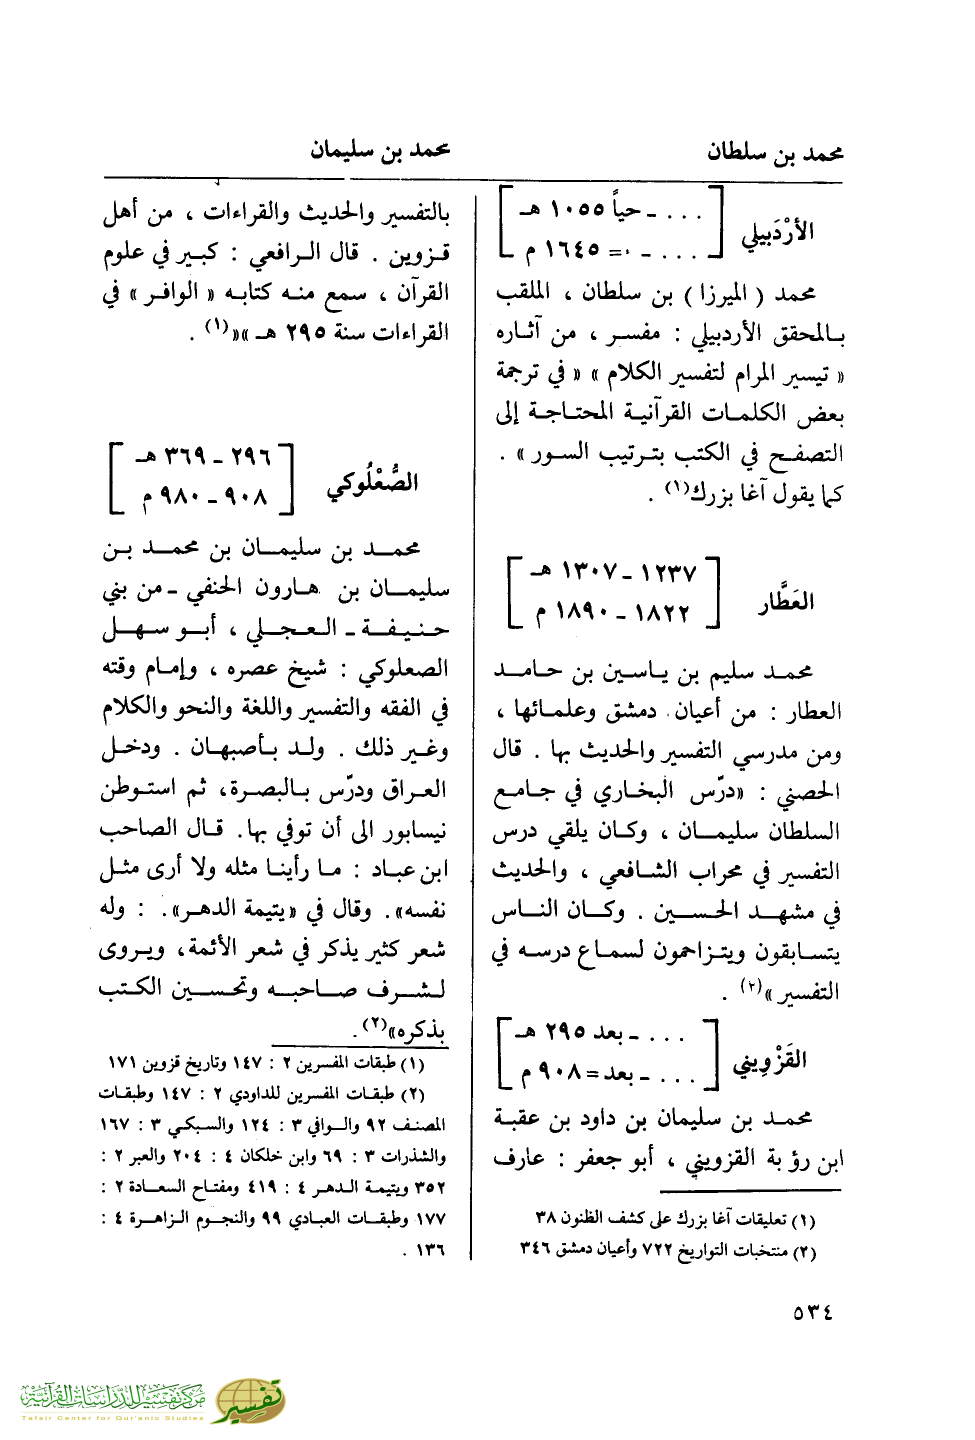 محمد بن سلطان
محمد بن سليمان
الأرْدَبيلي
[ . . . ـ حياً ١٠٥٥ هـ
. . . ـ ٠= ١٦٤٥ م ]
محمد ( الميرزا ) بن سلطان ، الملقب
بالمحقق الأردبيلي : مفسر ، من آثاره
« تيسير المرام لتفسير الكلام » « في ترجمة
بعض الكلمات القرآنية المحتاجة إلى
التصفح في الكتب بترتيب السور » .
كما يقول آغا بزرك(١) .
العَطَّار
[ ١٢٣٧ ـ ١٣٠٧ هـ
١٨٢٢ ـ ١٨٩٠ م ]
محمد سليم بن ياسين بن حامد
العطار : من أعيان دمشق وعلمائها ،
ومن مدرسي التفسير والحديث بها . قال
الحصني : «درّس البخاري في جامع
السلطان سليمان ، وكان يلقي درس
التفسير في محراب الشافعي ، والحديث
في مشهد الحسين . وكان الناس
يتسابقون ويتزاحمون لسماع درسه في
التفسير »(٢) .
القَزْوِيني
[ . . . ـ بعد ٢٩٥ هـ
. . . ـ بعد= ٩٠٨ م ]
محمد بن سليمان بن داود بن عقبة
ابن رؤبة القزويني ، أبو جعفر : عارف
(١) تعليقات آغا بزرك على كشف الظنون ٣٨
(٢) منتخبات التواريخ ٧٢٢ وأعيان دمشق ٣٤٦
بالتفسير والحديث والقراءات ، من أهل
قزوين . قال الرافعي : كبير في علوم
القرآن ، سمع منه كتابه « الوافر » في
القراءات سنة ٢٩٥ هـ »«(١) .
الصُّعْلُوكي
[ ٢٩٦ ـ ٣٦٩ هـ
٩٠٨ ـ ٩٨٠ م ]
محمد بن سليمان بن محمد بن
سليمان بن هارون الحنفي ـ من بني
حنيفة ـ العجلي ، أبو سهل
الصعلوكي : شيخ عصره ، وإمام وقته
في الفقه والتفسير واللغة والنحو والكلام
وغير ذلك . ولد بأصبهان . ودخل
العراق ودرّس بالبصرة، ثم استوطن
نيسابور الى أن توفي بها. قال الصاحب
ابن عباد : ما رأينا مثله ولا أرى مثل
نفسه». وقال في «يتيمة الدهر». : وله
شعر كثير يذكر في شعر الأئمة، ويروى
لشرف صاحبه وتحسين الكتب
بذكره»(٢).
(١) طبقات المفسرين ٢ : ١٤٧ وتاريخ قزوين ١٧١
(٢) طبقات المفسرين للداودي ٢ : ١٤٧ وطبقات
المصنف ٩٢ والوافي ٣ : ١٢٤ والسبكي ٣ : ١٦٧
والشذرات ٣ : ٦٩ وابن خلكان ٤ : ٢٠٤ والعبر ٢ :
٣٥٢ ويتيمة الدهر ٤ : ٤١٩ ومفتاح السعادة ٢ :
١٧٧ وطبقات العبادي ٩٩ والنجوم الزاهرة ٤ :
١٣٦ .
٥٣٤
مركز تفسير للدراسات القرآنية
Tafsir Center for Qur'anic Studies
تفسير